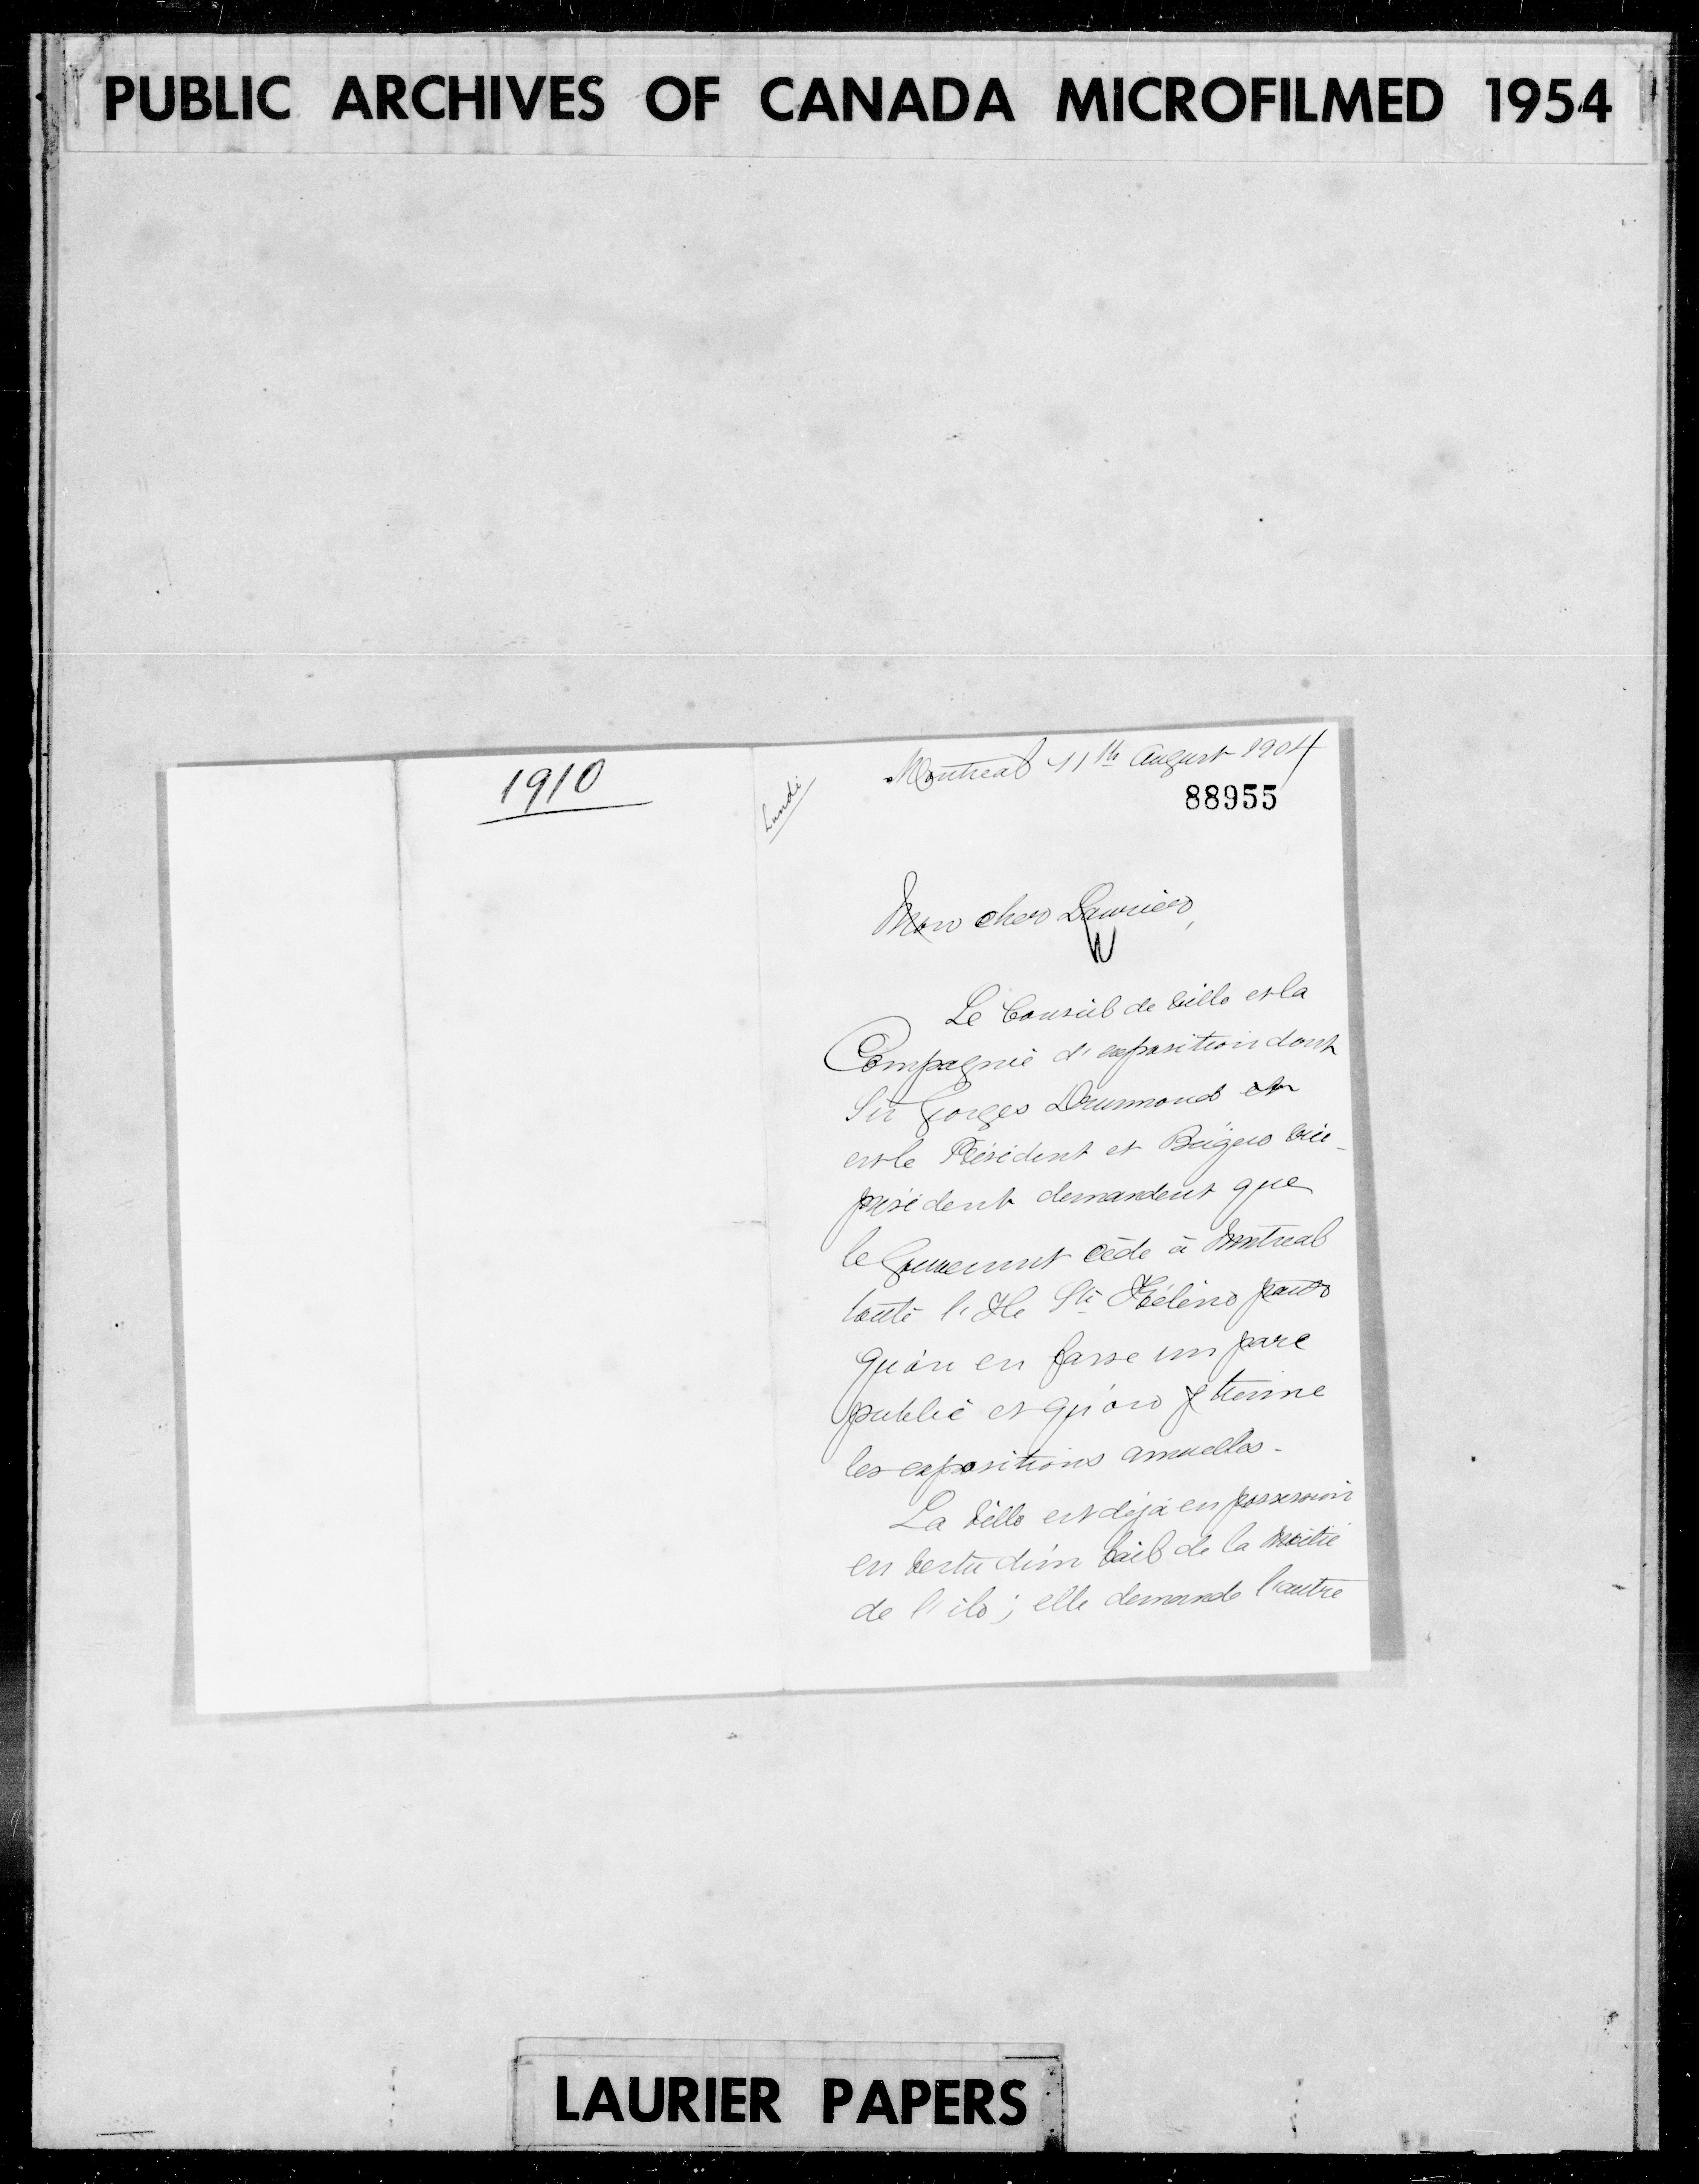 PUBLIC ARCHIVES OF CANADA MICROFILMED 1954
1910
Lundi
Montreal 11th August 1904
88955
Mon cher Laurier,
Le Conseil de Ville et la
Compagnie d'exposition dont
Sir Georges Drummond
est le Président et Vice-
président demandent que
le Gouvernement cède à Montreal
toute l'Ile Ste Hélène pour
qu'on en fasse un parc
public et qu'on y tienne
les expositions annuelles.
La Ville est déjà en possession
en vertu d'un bail de la moitié
de l'ile; elle demande l'autre
LAURIER PAPERS